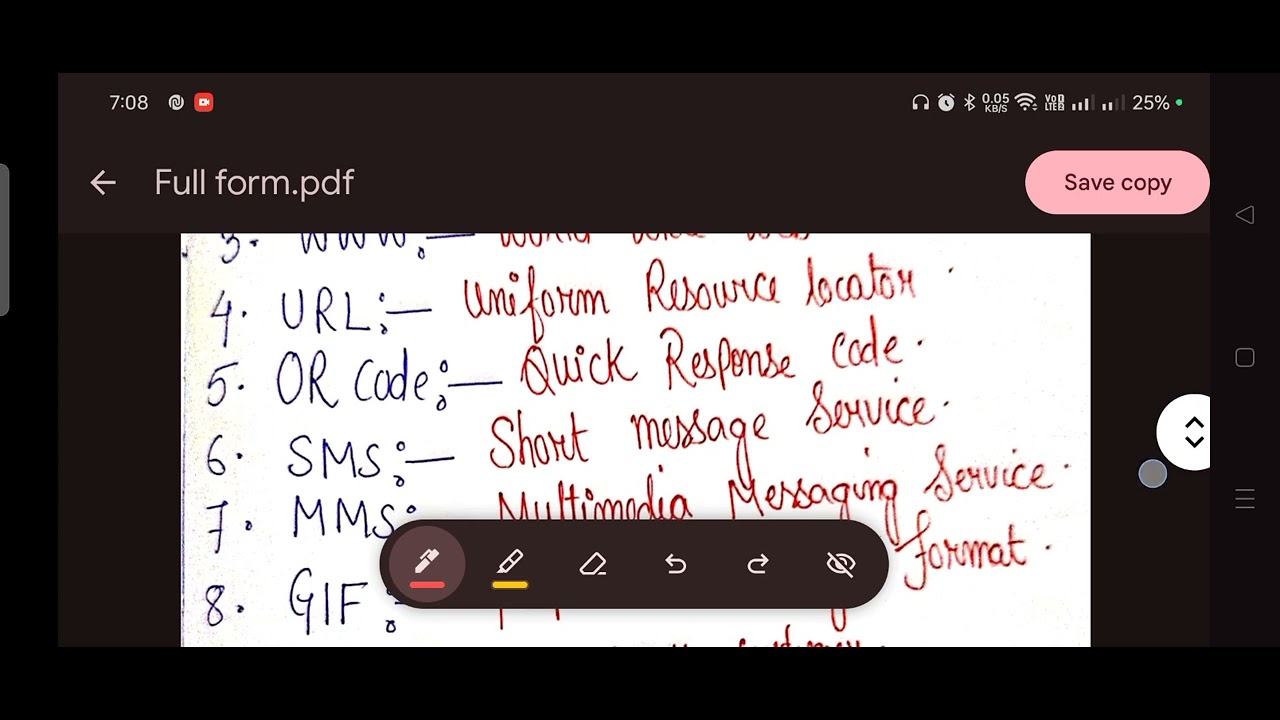 7:08 0.05 KB/S VoD LTE2 25%
Full form.pdf
Save copy
3. WWW:—
4. URL:— Uniform Resource locator.
5. OR Code:— Quick Response Code.
6. SMS:— Short message Service.
7. MMS: Multimedia Messaging Service.
8. GIF: format.